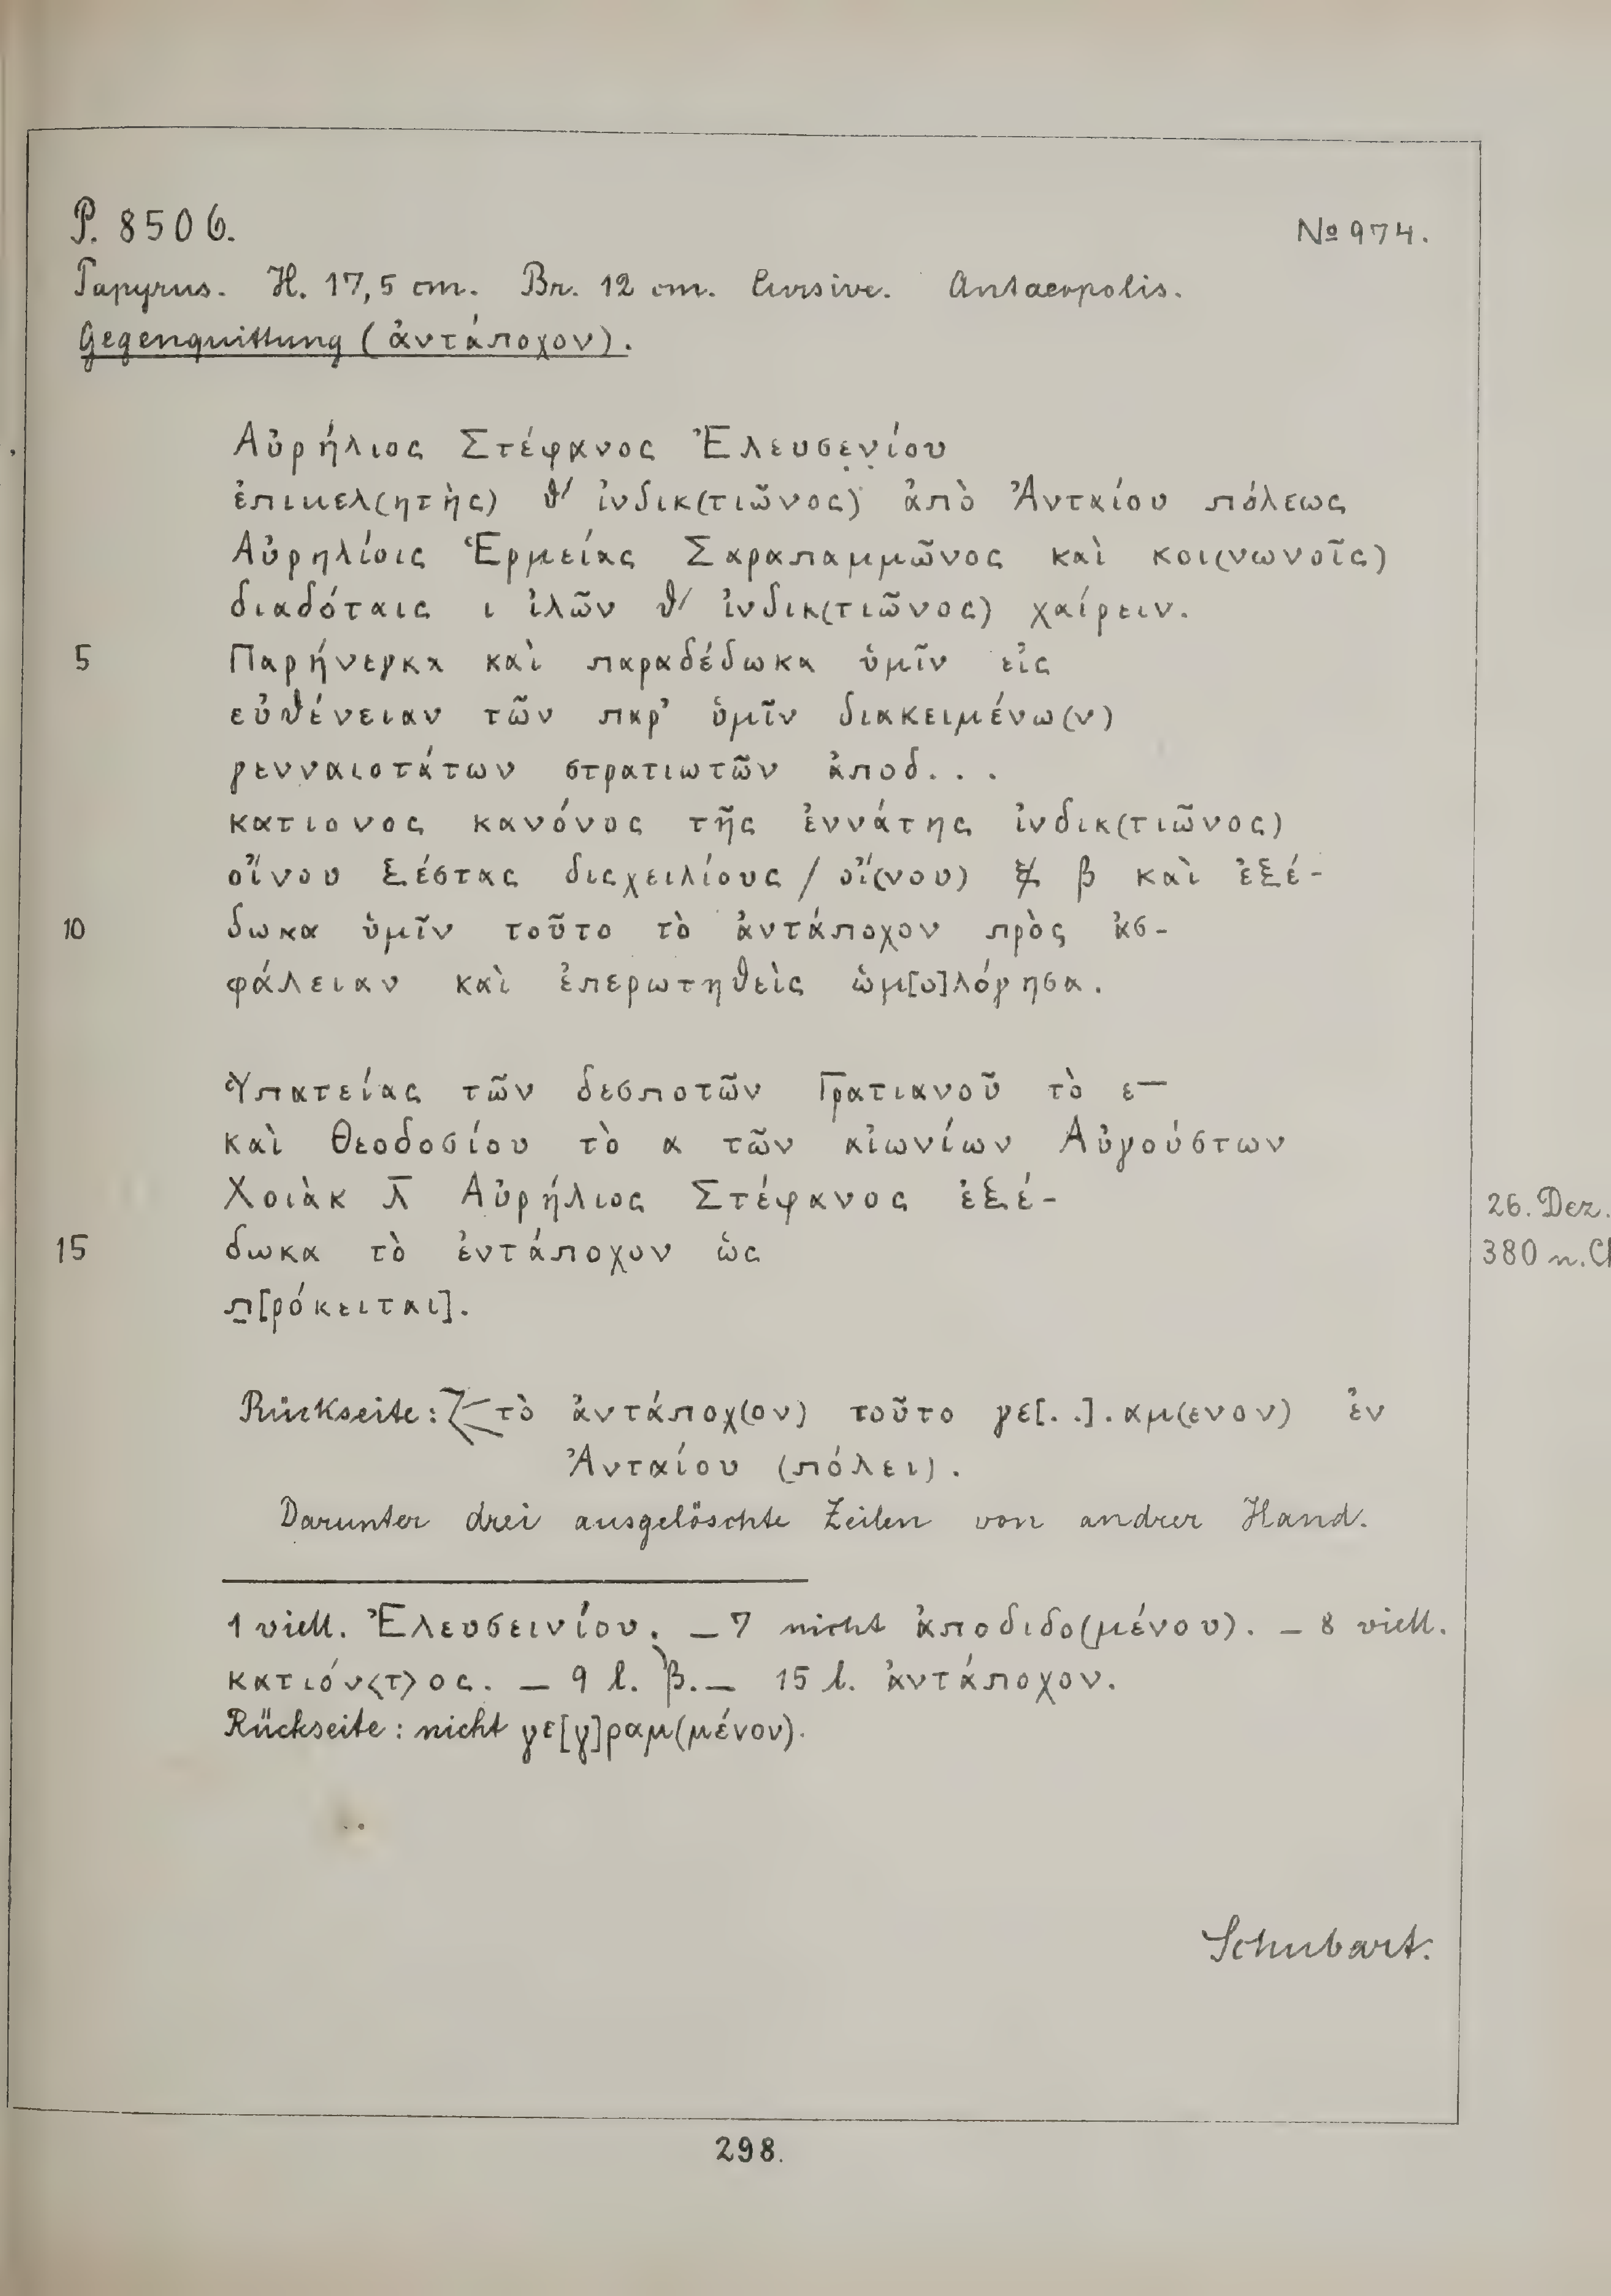 P. 8506.
№ 974.
Papyrus. H. 17,5 cm. Br. 12 cm. Cursive. Antaeopolis.
Gegenquittung (ἀντάποχον).
Αὐρήλιος Στέφανος Ἐλευσε̣ν̣ίου
ἐπιμελ(ητὴς) θ/ ἰνδικ(τιῶνος) ἀπὸ Ἀνταίου πόλεως
Αὐρηλίοις Ἑρμείας Σαραπαμμῶνος καὶ κοι(νωνοῖς)
διαδόταις ι ἰλῶν θ/ ἰνδικ(τιῶνος) χαίρειν.
5 Παρήνεγκα καὶ παραδέδωκα ὑμῖν εἰς
εὐθένειαν τῶν παρ' ὑμῖν διακειμένω(ν)
γενναιοτάτων στρατιωτῶν ἀποδ...
κατιονος κανόνος τῆς ἐννάτης ἰνδικ(τιῶνος)
οἴνου ξέστας διςχειλίους / οἴ(νου) ξ β καὶ ἐξέ-
10 δωκα ὑμῖν τοῦτο τὸ ἀντάποχον πρὸς ἀσ-
φάλειαν καὶ ἐπερωτηθεὶς ὡμ[ο]λόγησα.
Ὑπατείας τῶν δεσποτῶν Γρατιανοῦ τὸ ε—
καὶ Θεοδοσίου τὸ α τῶν αἰωνίων Αὐγούστων
Χοιὰκ λ̅ Αὐρήλιος Στέφανος ἐξέ-
26. Dez.
15 δωκα τὸ ἐντάποχον ὡς
380 n. Ch
π̣[ρόκειται].
Rückseite: τὸ ἀντάποχ(ον) τοῦτο γε[..].αμ(ενον) ἐν
Ἀνταίου (πόλει).
Darunter drei ausgelöschte Zeilen von andrer Hand.
1 viell. Ἐλευσεινίου. — 7 nicht ἀποδιδο(μένου). — 8 viell.
κατιόν⟨τ⟩ος. — 9 l. ͵β. — 15 l. ἀντάποχον.
Rückseite: nicht γε[γ]ραμ(μένον).
Schubart.
298.